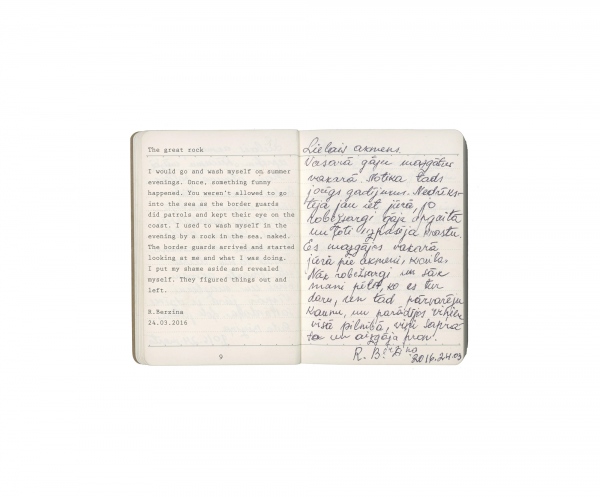 The great rock
I would go and wash myself on summer
evenings. Once, something funny
happened. You weren't allowed to go
into the sea as the border guards
did patrols and kept their eye on the
coast. I used to wash myself in the
evening by a rock in the sea, naked.
The border guards arrived and started
looking at me and what I was doing.
I put my shame aside and revealed
myself. They figured things out and
left.
R.Berzina
24.03.2016
9
Lielais akmens.
Vasarā gāju mazgāties
vakarā. Notika tāds
jocīgs gadījums. Nedrīks-
tēja jau iet jūrā, jo
robežsargi gāja apgaitā
un ļoti izkāsīja krastu.
Es mazgājos vakarā
jūrā pie akmeņi,
Nāk robežsargi un sāk
mani pētīt, ko es tur
daru, un tad pārvarēju
kaunu, un parādījos viņiem
visā pilnībā, viņi sapra
ta un aizgāja prom.
R. Bērziņa 2016.24.03